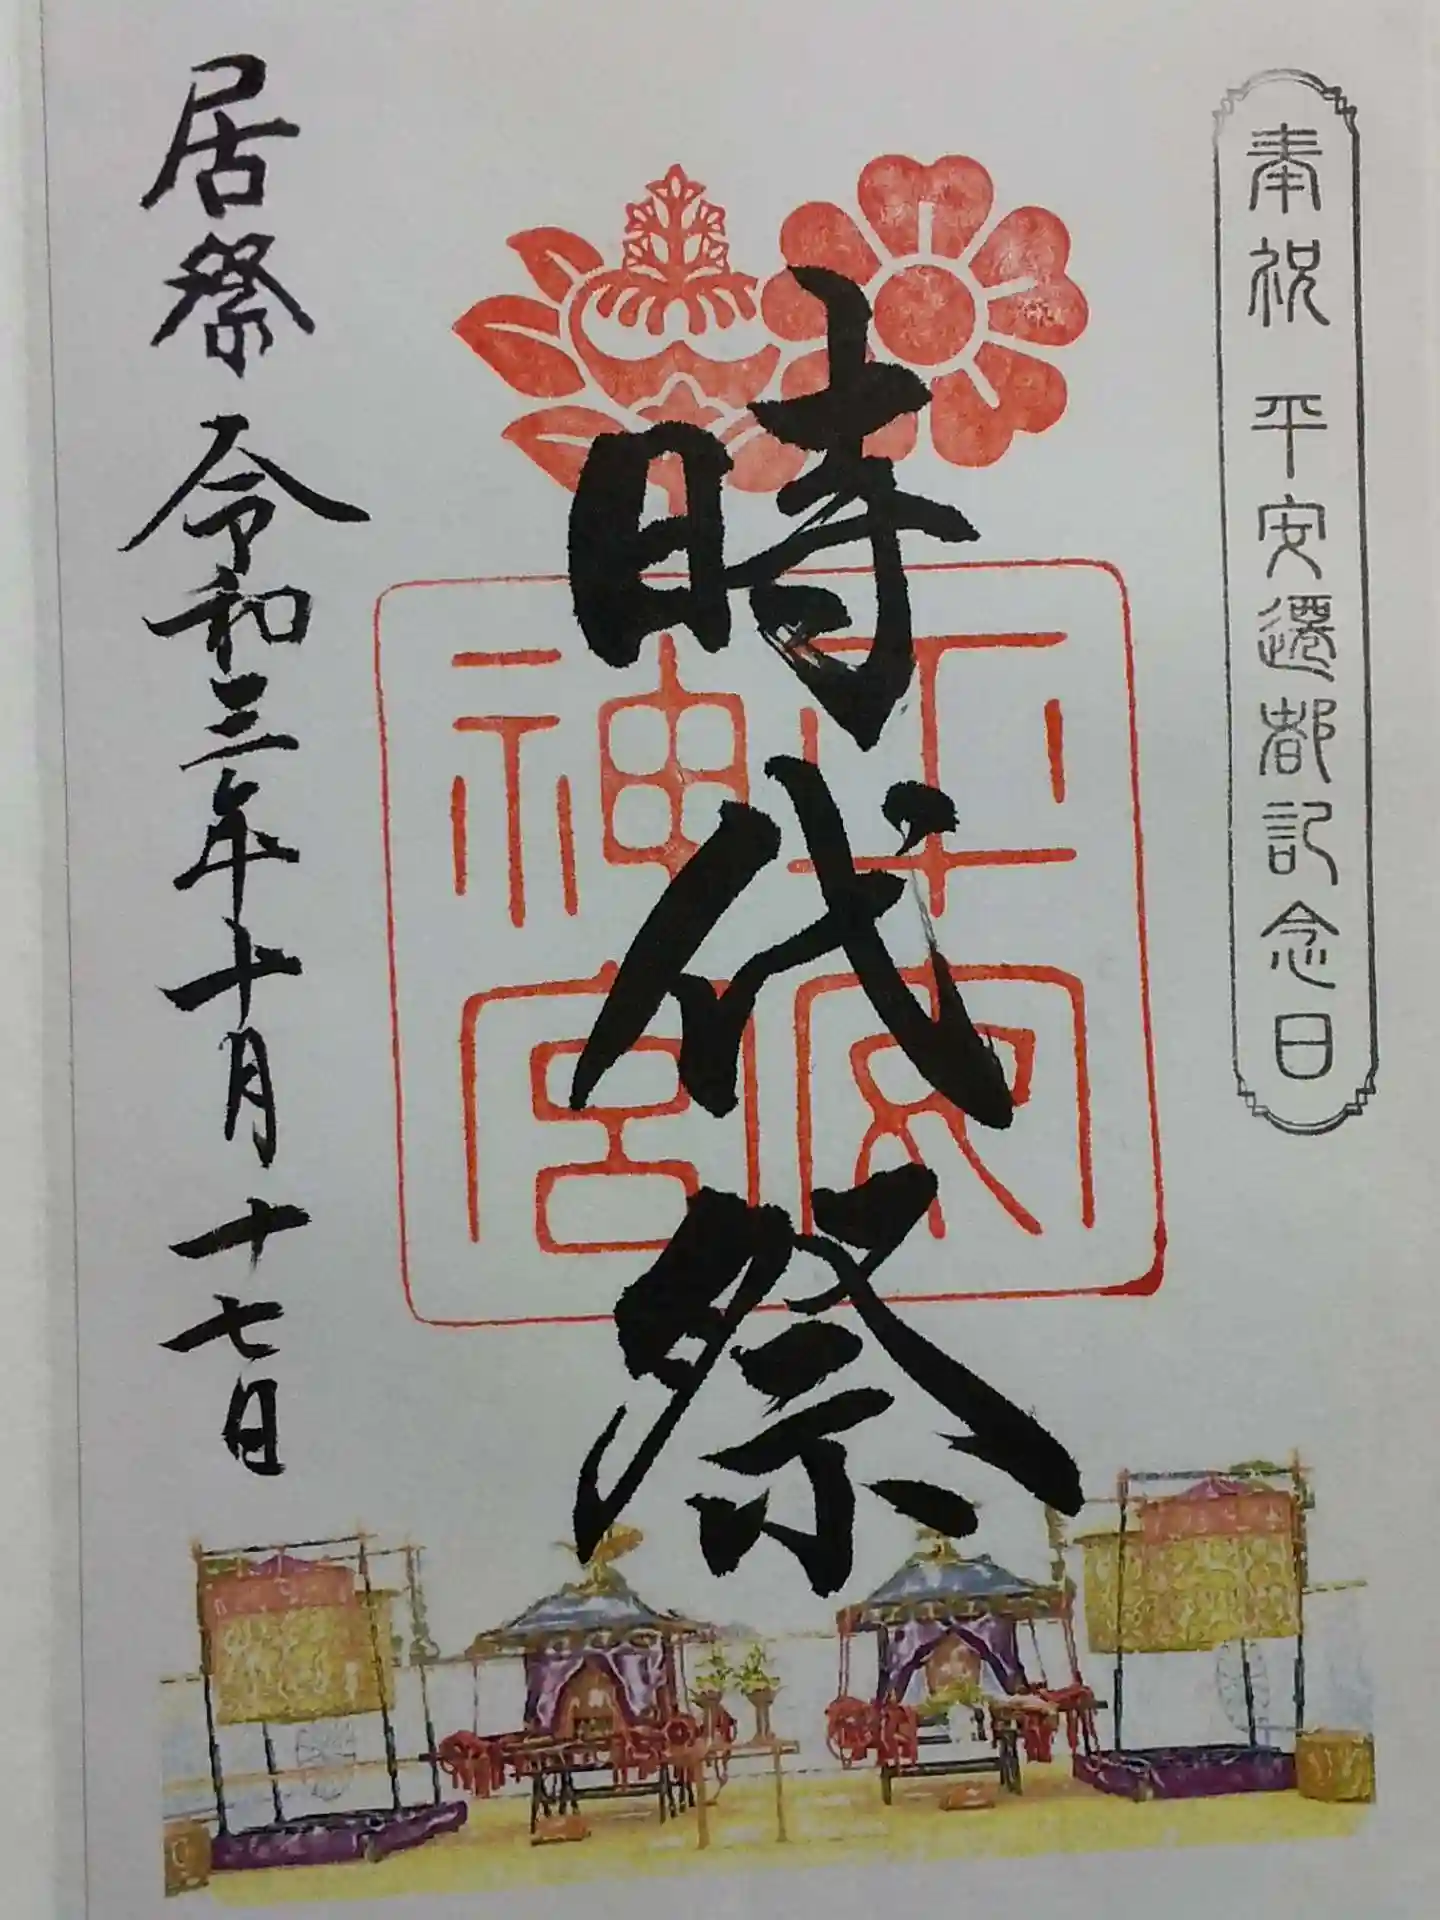 奉祝 平安遷都記念日
時代祭
平安神宮
居祭 令和三年十月十七日